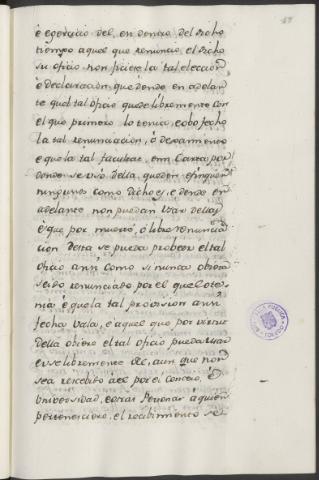 è egercicio del, en dentro del dicho
tiempo aquel que renuncio el dicho
su oficio non ficiere la tal eleccion
ò declaracion, que dende en adelan-
te quel tal oficio quede libremente con
el que primero lo tenia, e obo fecho
la tal renunciacion, ò desapimiento
e que la tal facultad, e mi Carta, por
donde se usò della, queden è finquen
ningunos como dicho es, e dende en
adelante non puedan usar dellas
è que por muerte, o libre renuncia-
cion desta se pueda probeer el tal
Oficio ann como si nunca obiera
seido renunciado por el que lo te-
nia è que la tal provision ann
fecha vala, e aquel que por virtud
della obiere el tal oficio pueda usar
è use libremente del, aun que non
sea rescebido à el por el Concejo, è
Universidad, e otras Personas à quien
pertenesciere, el recibimiento se-